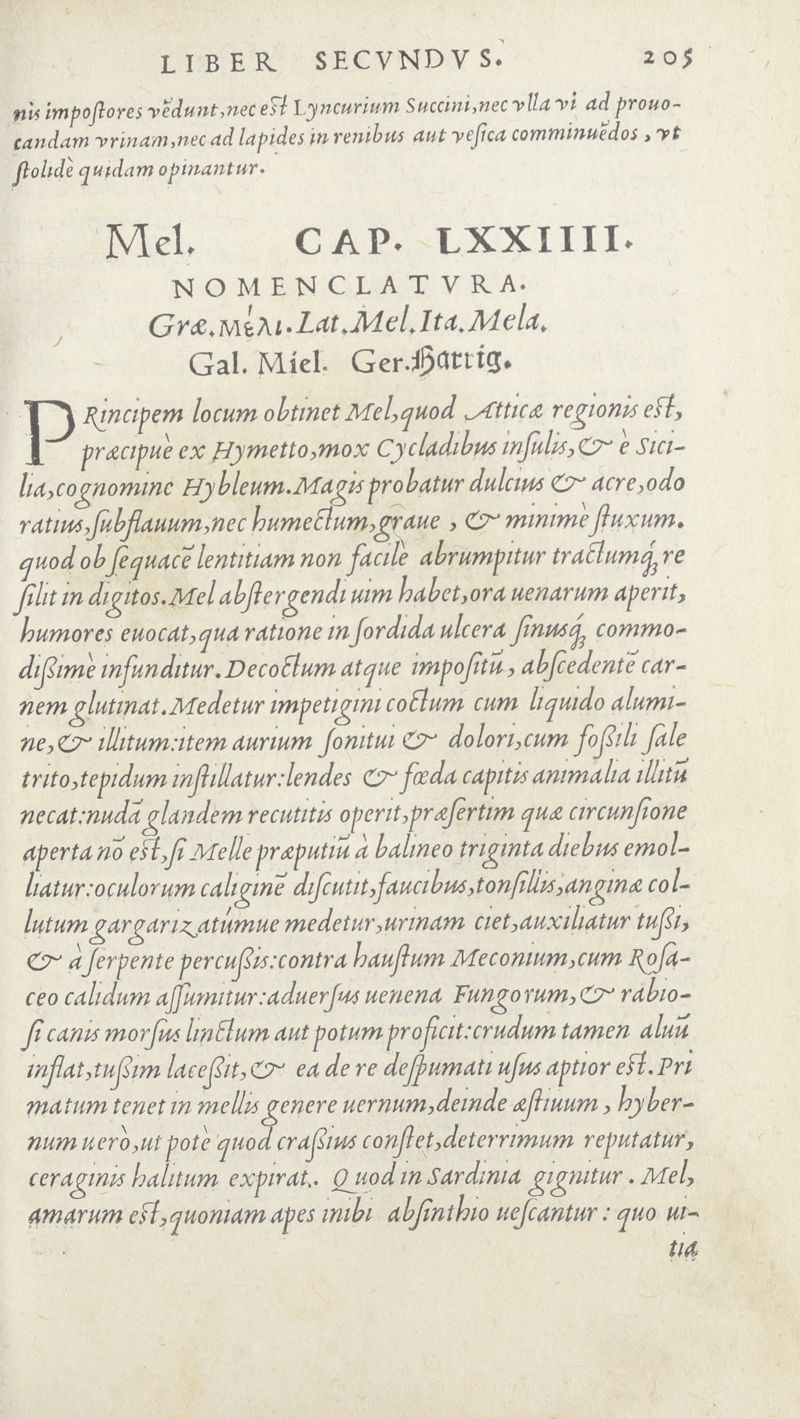 LIBER SECVNDVS. 205
nis impoſtores vẽdunt, nec eſt Lyncurium Succini, nec vlla vi ad prouo-
candam vrinam, nec ad lapides in renibus aut veſica comminuẽdos, vt
ſtolidè quidam opinantur.
Mel. CAP. LXXIIII.
NOMENCLATVRA.
Græ. μέλι. Lat. Mel. Ita. Mela.
Gal. Miel. Ger. Hannig.
PRincipem locum obtinet Mel, quod Atticæ regionis eſt,
præcipuè ex Hymetto, mox Cycladibus inſulis, & è Sici-
lia, cognomine Hybleum. Magis probatur dulcius & acre, odo
ratius, ſubflauum, nec humectum, graue, & minimè fluxum.
quod ob ſequacẽ lentitiam non facilè abrumpitur tractumq́; re
ſilit in digitos. Mel abſtergendi uim habet, ora uenarum aperit,
humores euocat, qua ratione in ſordida ulcera ſinusq́; commo-
dißimè infunditur. Decoctum atque impoſitũ, abſcedentẽ car-
nem glutinat. Medetur impetigini coctum cum liquido alumi-
ne, & illitum: item aurium ſonitui & dolori, cum foßili ſale
trito, tepidum inſtillatur: lendes & fœda capitis animalia illitũ
necat: nudã glandem recutitis operit, præſertim quæ circunſione
aperta nõ eſt, ſi Melle præputiũ à balineo triginta diebus emol-
liatur: oculorum caliginẽ diſcutit, faucibus, tonſillis, anginæ col-
lutum gargarizatúmue medetur, urinam ciet, auxiliatur tußi,
& à ſerpente percußis: contra hauſtum Meconium, cum Roſa-
ceo calidum aſſumitur: aduerſus uenena Fungorum, & rabio-
ſi canis morſus linctum aut potum proficit: crudum tamen aluũ
inflat, tußim laceßit, & ea de re deſpumati uſus aptior eſt. Pri
matum tenet in mellis genere uernum, deinde æſtiuum, hyber-
num uerò, ut pote quod craßius conſtet, deterrimum reputatur,
ceraginis halitum expirat,. Quod in Sardinia gignitur. Mel,
amarum eſt, quoniam apes inibi abſinthio ueſcantur: quo ui-
tia